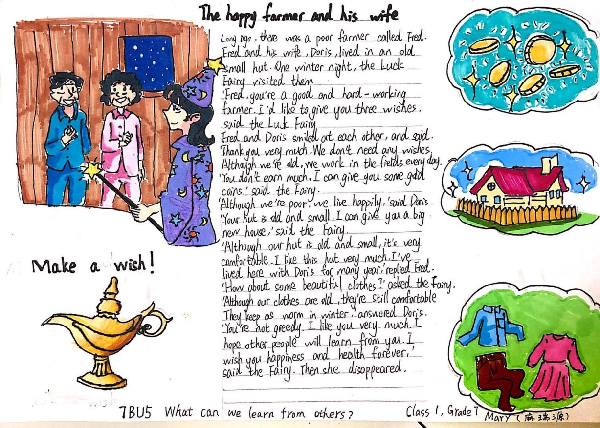 The happy farmer and his wife
Long ago, there was a poor farmer called Fred.
Fred and his wife, Doris, lived in an old
small hut. One winter night, the Luck
Fairy visited them
'Fred, you're a good and hard-working
farmer. I'd like to give you three wishes.
said the Luck Fairy
Fred and Doris smiled at each other, and said.
Thank you very much. We don't need any wishes,
Although we're old, we work in the fields every day.
'You don't earn much. I can give you some gold
coins.' said the Fairy.
'Although we're poor, we live happily.' said Doris
'Your hut is old and small. I can give you a big
new house,' said the Fairy.
'Although our hut is old and small, it's very
comfortable. I like this hut very much. I've
lived here with Doris for many year.' replied Fred.
'How about some beautiful clothes?' asked the Fairy.
'Although our clothes are old, they're still comfortable
They keep as warm in winter. answered Doris.
'You're not greedy. I like you very much. I
hope other people will learn from you. I
wish you happiness and health forever,'
said the Fairy. Then she disappeared.
Make a wish!
7BU5 What can we learn from others?
Class 1, Grade 7 Mary